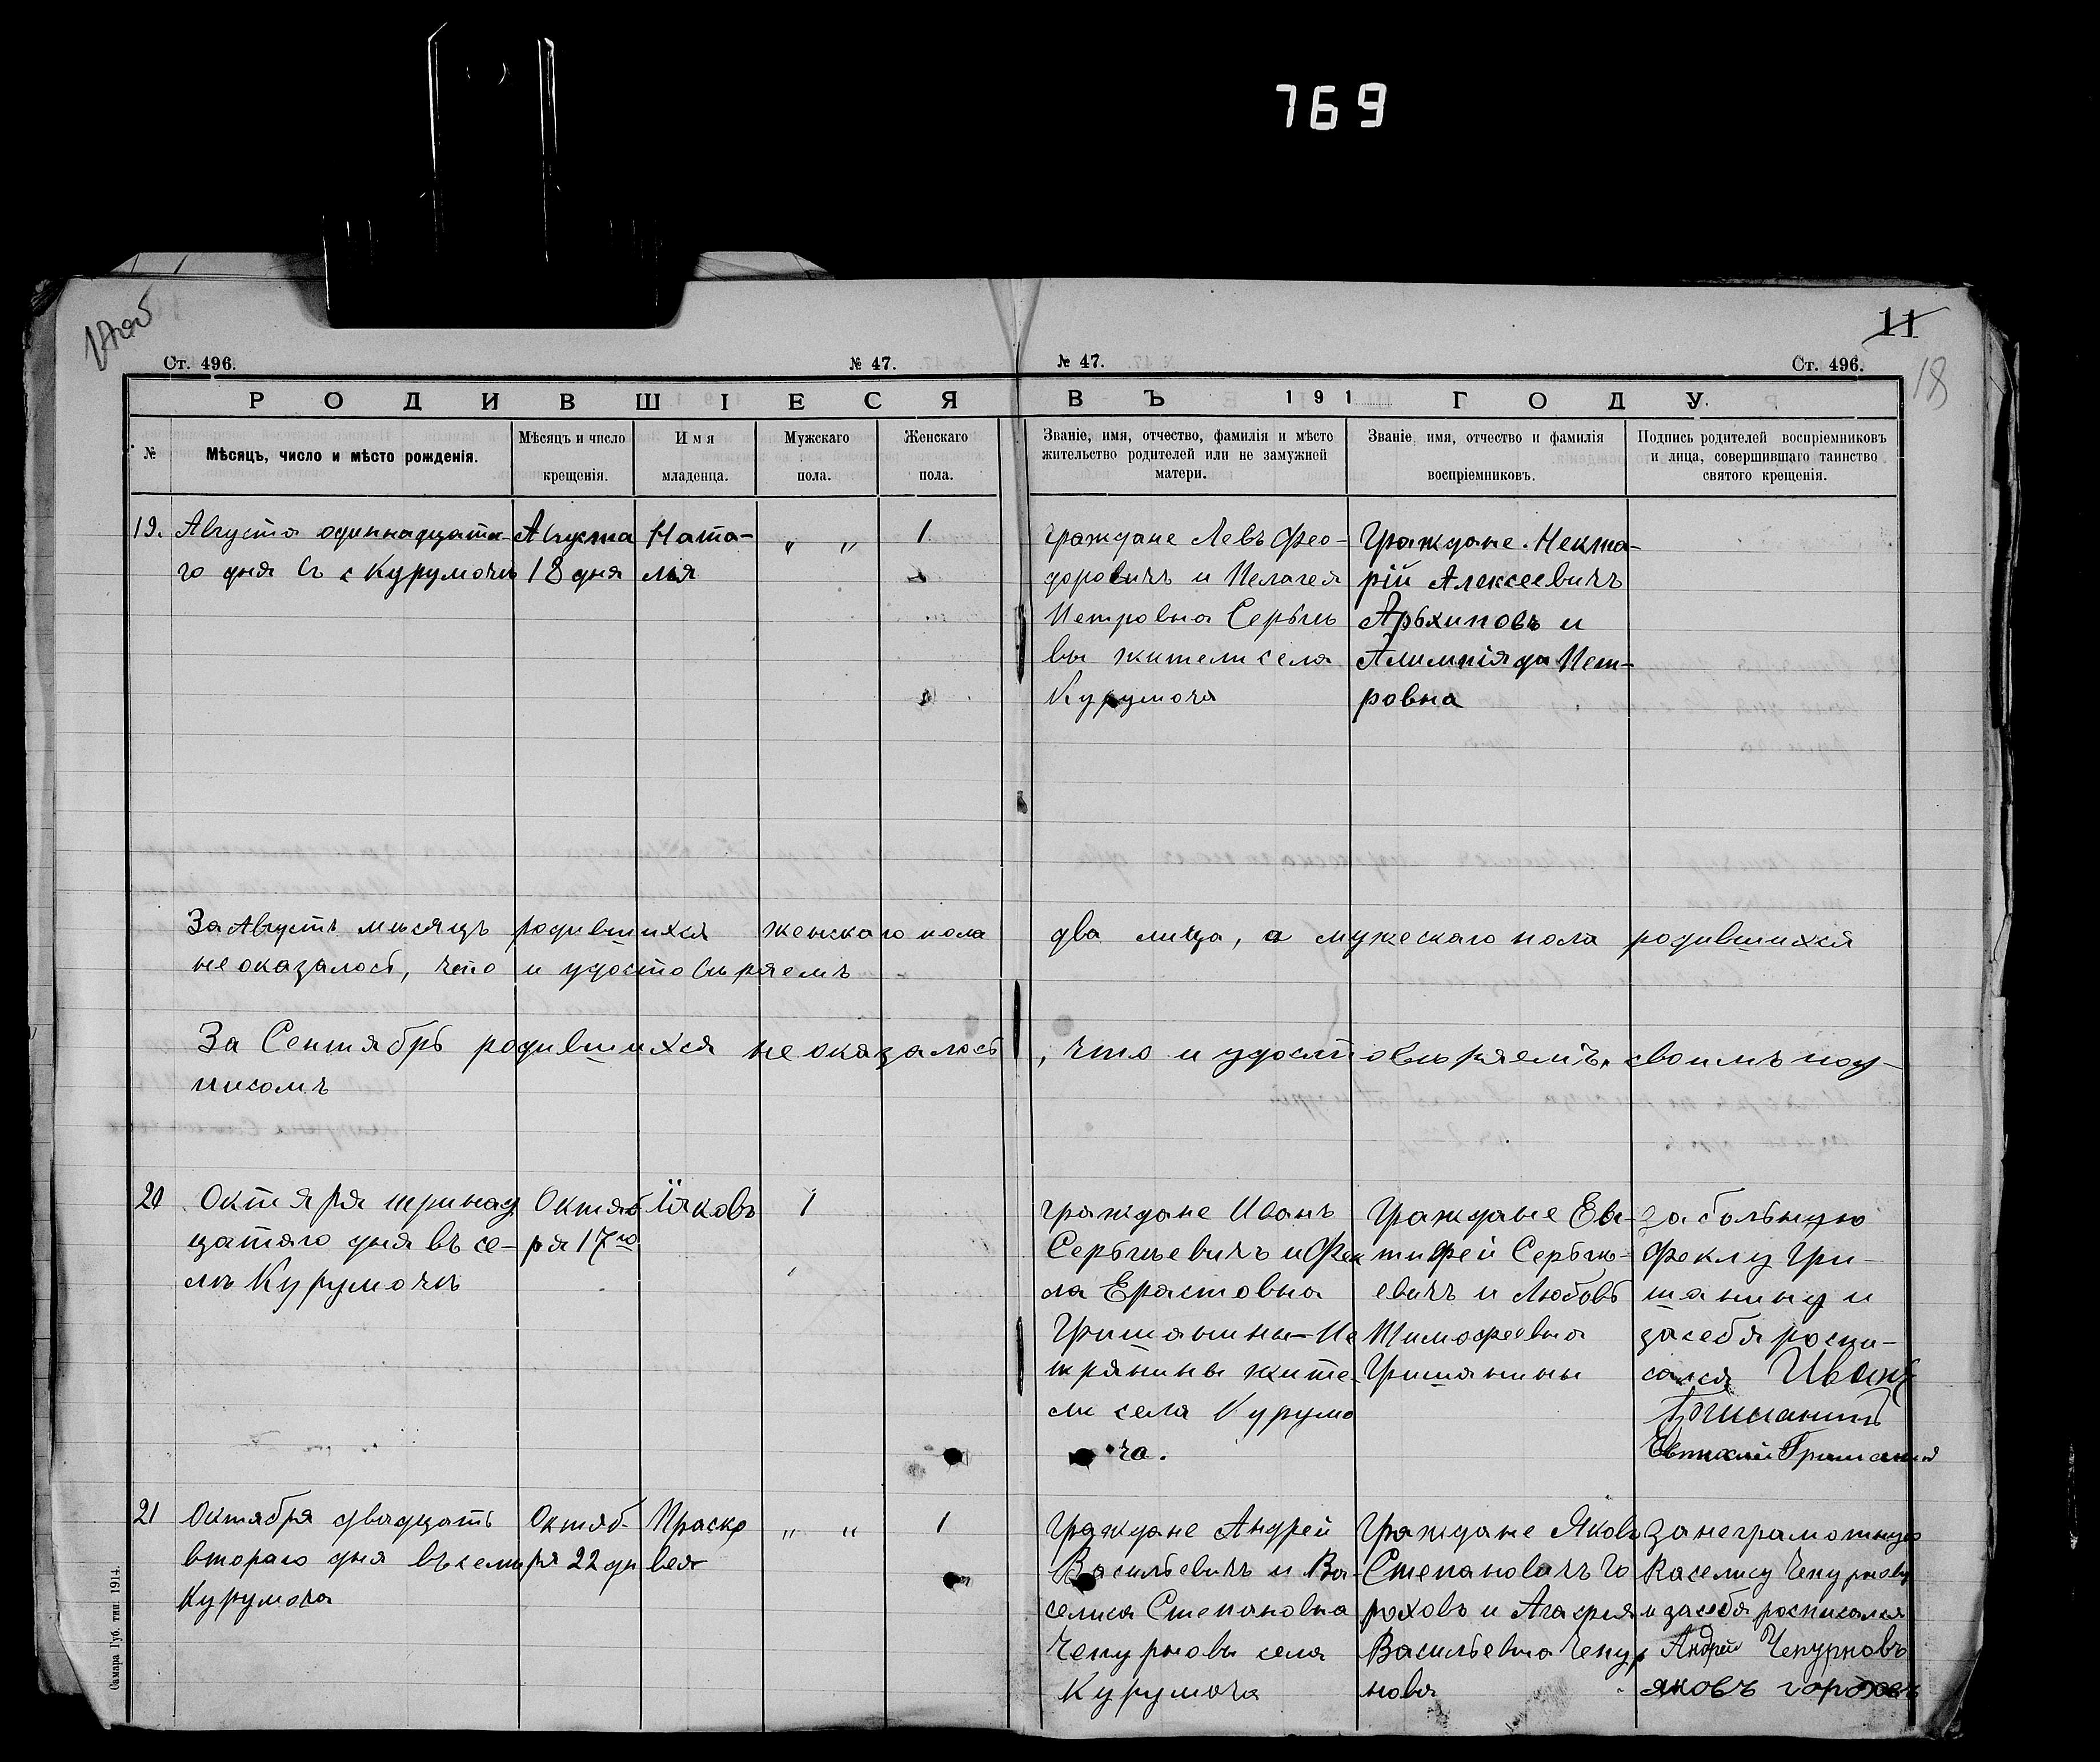 769
11
18
Ст. 496.
№ 47.
РОДИВШІЕСЯ
№
Мѣсяцъ, число и мѣсто рожденія.
Мѣсяцъ и число
крещенія.
Имя
младенца.
Мужскаго
пола.
Женскаго
пола.
№ 47.
Ст. 496.
ВЪ 191 ГОДУ.
Званіе, имя, отчество, фамилія и мѣсто
жительство родителей или не замужней
матери.
Званіе, имя, отчество и фамилія
воспріемниковъ.
Подпись родителей воспріемниковъ
и лица, совершившаго таинство
святого крещенія.
19.
Августа одиннадцата-
го дня въ с Курумочѣ
Августа
18 дня
Ната-
лья
„ „
1
Граждане Левъ Фео-
доровичъ и Пелагея
Петровна Сергѣе
вы жители села
Курумоча
Граждане Некта-
рій Алексеевичъ
Арьхиповъ и
Алимпіяда Пет-
ровна
За Августъ мѣсяцъ родившихся женскаго пола два лица, а мужескаго пола родившихся
не оказалось, что и удостовѣряемъ
За Сентябрь родившихся не оказалось, что и удостовѣряемъ, своимъ под-
писомъ
20
Октяря тринад
цатаго дня въ се-
лѣ Курумочѣ
Октяб
ря 17го
Іаковъ
1
Граждане Иванъ
Сергѣевичъ и Фек
ла Ерастовна
Гришанины-Пе
трянины жите-
ли села Курумо
ча.
Граждане Ев-
тифей Сергѣ-
евичъ и Любовь
Тимофеевна
Гришанины
за больную
Феклу Гри-
шанину и
за себя роспи-
сался Иванъ
Гришанинъ
Евтихей Гришанин
21
Октября двадцать
второго дня въ селѣ
Курумоча
Октяб-
ря 22 дн
Праско
вея
„ „
1
Граждане Андрей
Васильевичъ и Ва-
селиса Степановна
Чепурновы села
Курумоча
Граждане Яковъ
Степановичъ Го
роховъ и Агафия
Васильевна Чепур
нова
За неграмотную
Васелису Чепурнову
и за себя росписался
Андрей Чепурновъ
яковъ гороховъ
Самара Губ. тип. 1914.